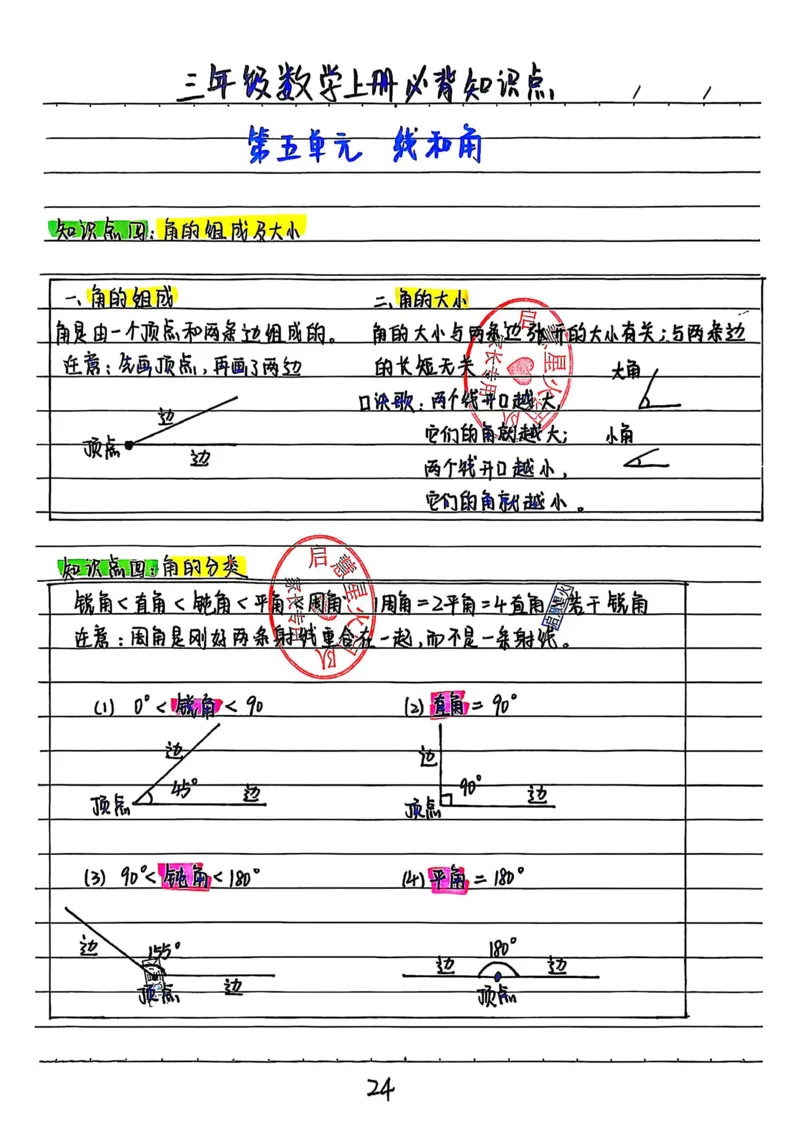 三年级数学上册必背知识点 / /
第五单元 线和角
知识点四:角的组成及大小
一、角的组成
角是由一个顶点和两条边组成的。
注意:先画顶点,再画了两边
边
顶点
边
二、角的大小
角的大小与两条边张开的大小有关;与两条边
的长短无关
大角
口诀歌:两个线开口越大,
它们的角就越大;
小角
两个线开口越小,
它们的角就越小。
启慧星火
家长专用
队
知识点四:角的分类
锐角<直角<钝角<平角<周角 1周角=2平角=4直角 若干锐角
注意:周角是刚好两条射线重合在一起,而不是一条射线。
启慧星火
家长专
队
(1) 0°<锐角<90
边
45°
边
顶点
(2) 直角=90°
边
90°
边
顶点
(3) 90°<钝角<180°
边
155°
顶点
边
(4) 平角=180°
180°
边
边
顶点
24